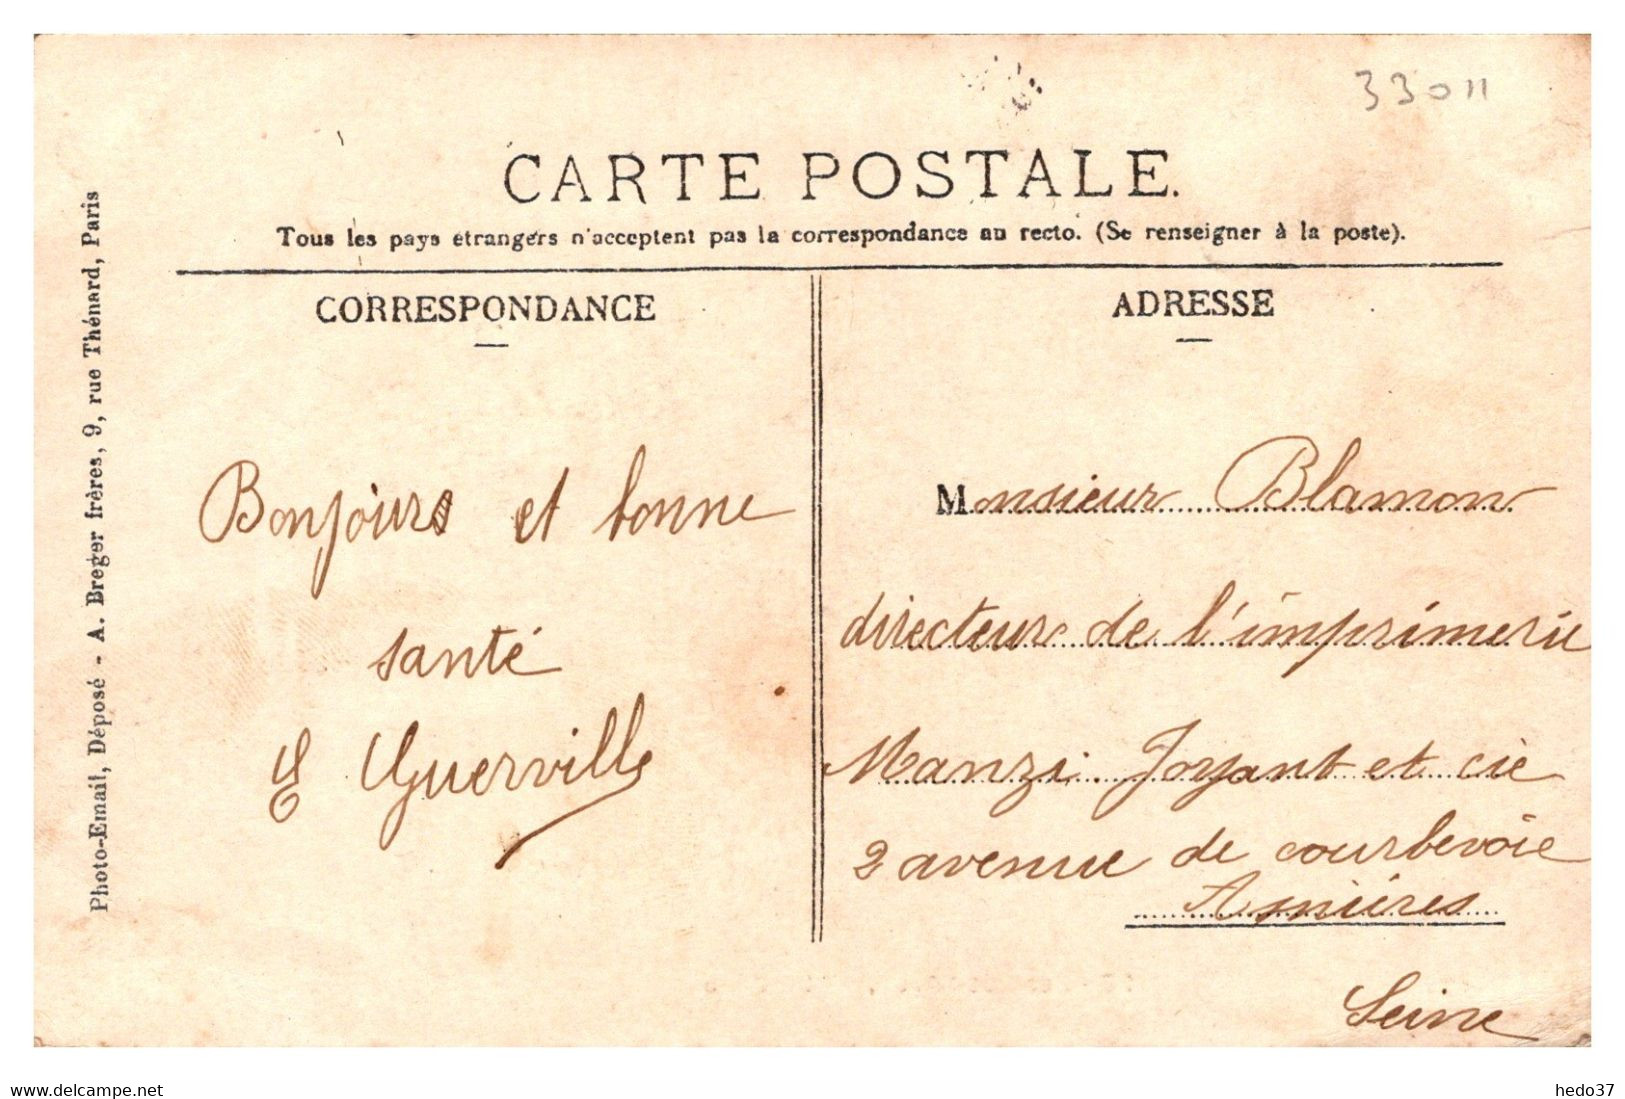 33011
CARTE POSTALE.
Tous les pays étrangers n'acceptent pas la correspondance au recto. (Se renseigner à la poste).
CORRESPONDANCE
Bonjours et bonne
santé
E Guerville
ADRESSE
Monsieur Blamon
directeur de l'imprimerie
Manzi Joyant et cie
2 avenue de courbevoie
Asnières
Seine
Photo-Email, Déposé - A. Breger frères, 9, rue Thénard, Paris
www.delcampe.net
hedo37